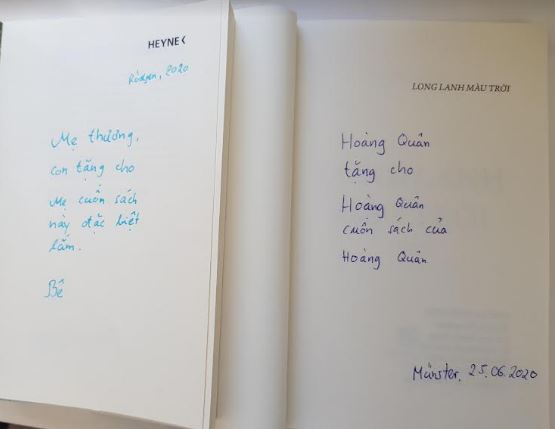 HEYNE <
Rügen, 2020
Mẹ thương,
con tặng cho
Mẹ cuốn sách
này đặc biệt
lắm.
Bê
LONG LANH MÀU TRỜI
Hoàng Quân
tặng cho
Hoàng Quân
cuốn sách của
Hoàng Quân
Münster, 25.06.2020